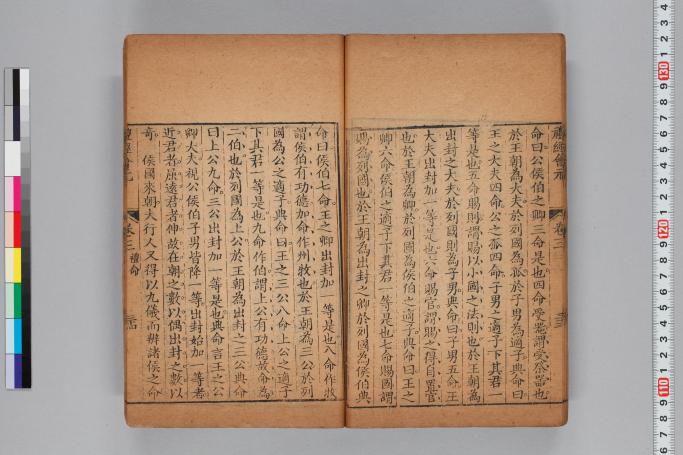 命曰公侯伯之卿三命是也四命受器謂受祭器也
於王朝為大夫於列國為孤於子男為適子典命曰
王之大夫四命公之孤四命子男之適子下其君一
等是也五命賜則謂賜以小國之法則也於王朝為
出封之大夫於列國則為子男典命曰子男五命王
大夫出封加一等是也六命賜官謂賜之得自置官
也於王朝為卿於列國為侯伯之適子典命曰王之
卿六命侯伯之適子下其君一等是也七命賜國謂
賜為列國也於王朝為出封之卿於列國為侯伯典
命曰侯伯七命王之卿出封加一等是也八命作牧
謂侯伯有功德加命作州牧也於王朝為三公於列
國為公之適子典命曰王之三公八命上公之適子
下其君一等是也九命作伯謂上公有功德故命為
二伯也於列國為上公於王朝為出封之三公典命
曰上公九命三公出封加一等是也典命言王之公
卿大夫視公侯伯子男皆降一等出封始加一等者
近君者屈遠君者伸故在朝之數以偶出封之數以
奇 侯國來朝大行人又得以九儀而辨諸侯之命
卷三 禮命